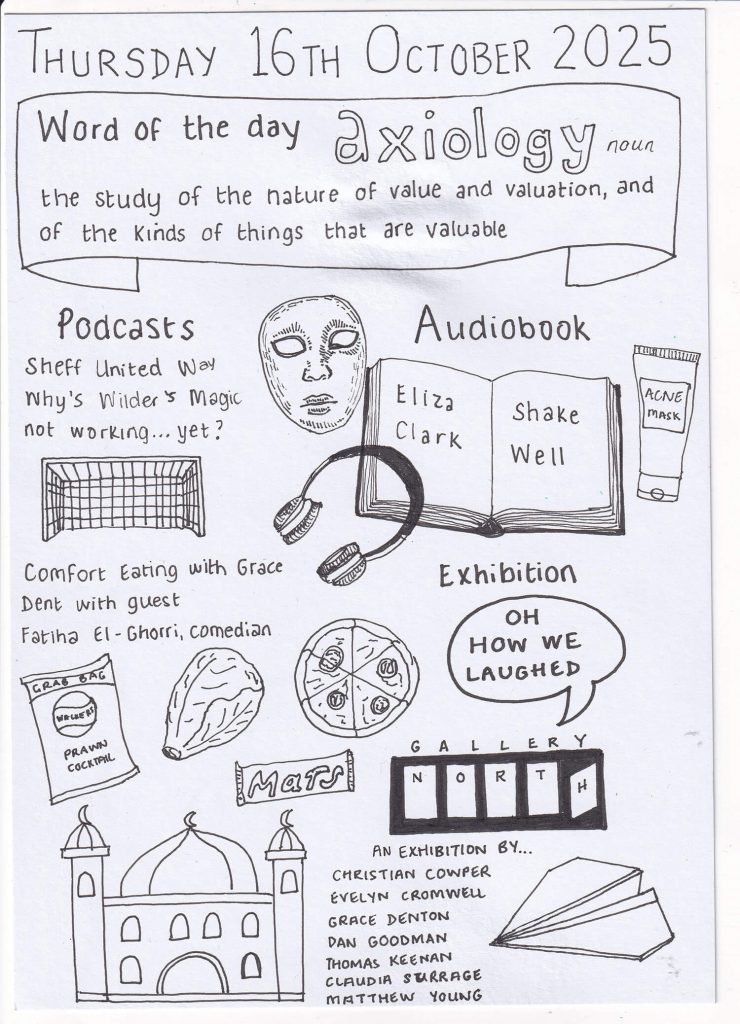 THURSDAY 16TH OCTOBER 2025
Word of the day axiology noun
the study of the nature of value and valuation, and
of the kinds of things that are valuable
Podcasts
Sheff United Way
Why's Wilder's Magic
not working... yet?
Comfort Eating with Grace
Dent with guest
Fatiha El-Ghorri, comedian
GRAB BAG
WALKERS
PRAWN
COCKTAIL
MARS
Audiobook
Eliza
Clark
Shake
Well
ACNE
MASK
Exhibition
OH
HOW WE
LAUGHED
GALLERY
NORTH
AN EXHIBITION BY...
CHRISTIAN COWPER
EVELYN CROMWELL
GRACE DENTON
DAN GOODMAN
THOMAS KEENAN
CLAUDIA STURRAGE
MATTHEW YOUNG